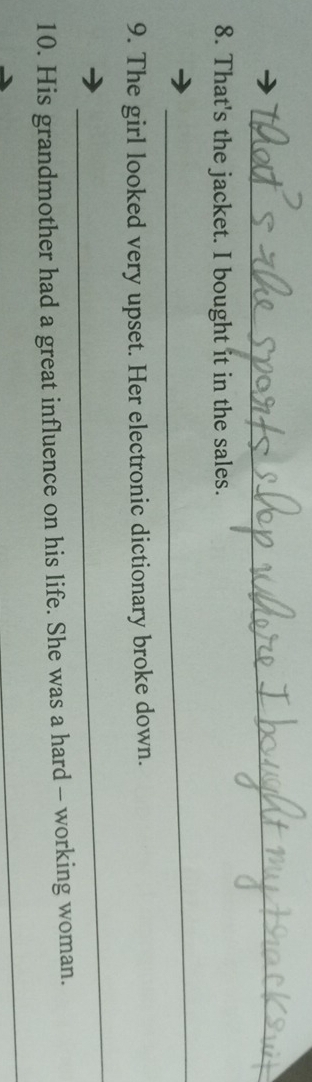 → That's the sports shop where I bought my tracksuit
8. That's the jacket. I bought it in the sales.
→
9. The girl looked very upset. Her electronic dictionary broke down.
→
10. His grandmother had a great influence on his life. She was a hard – working woman.
→